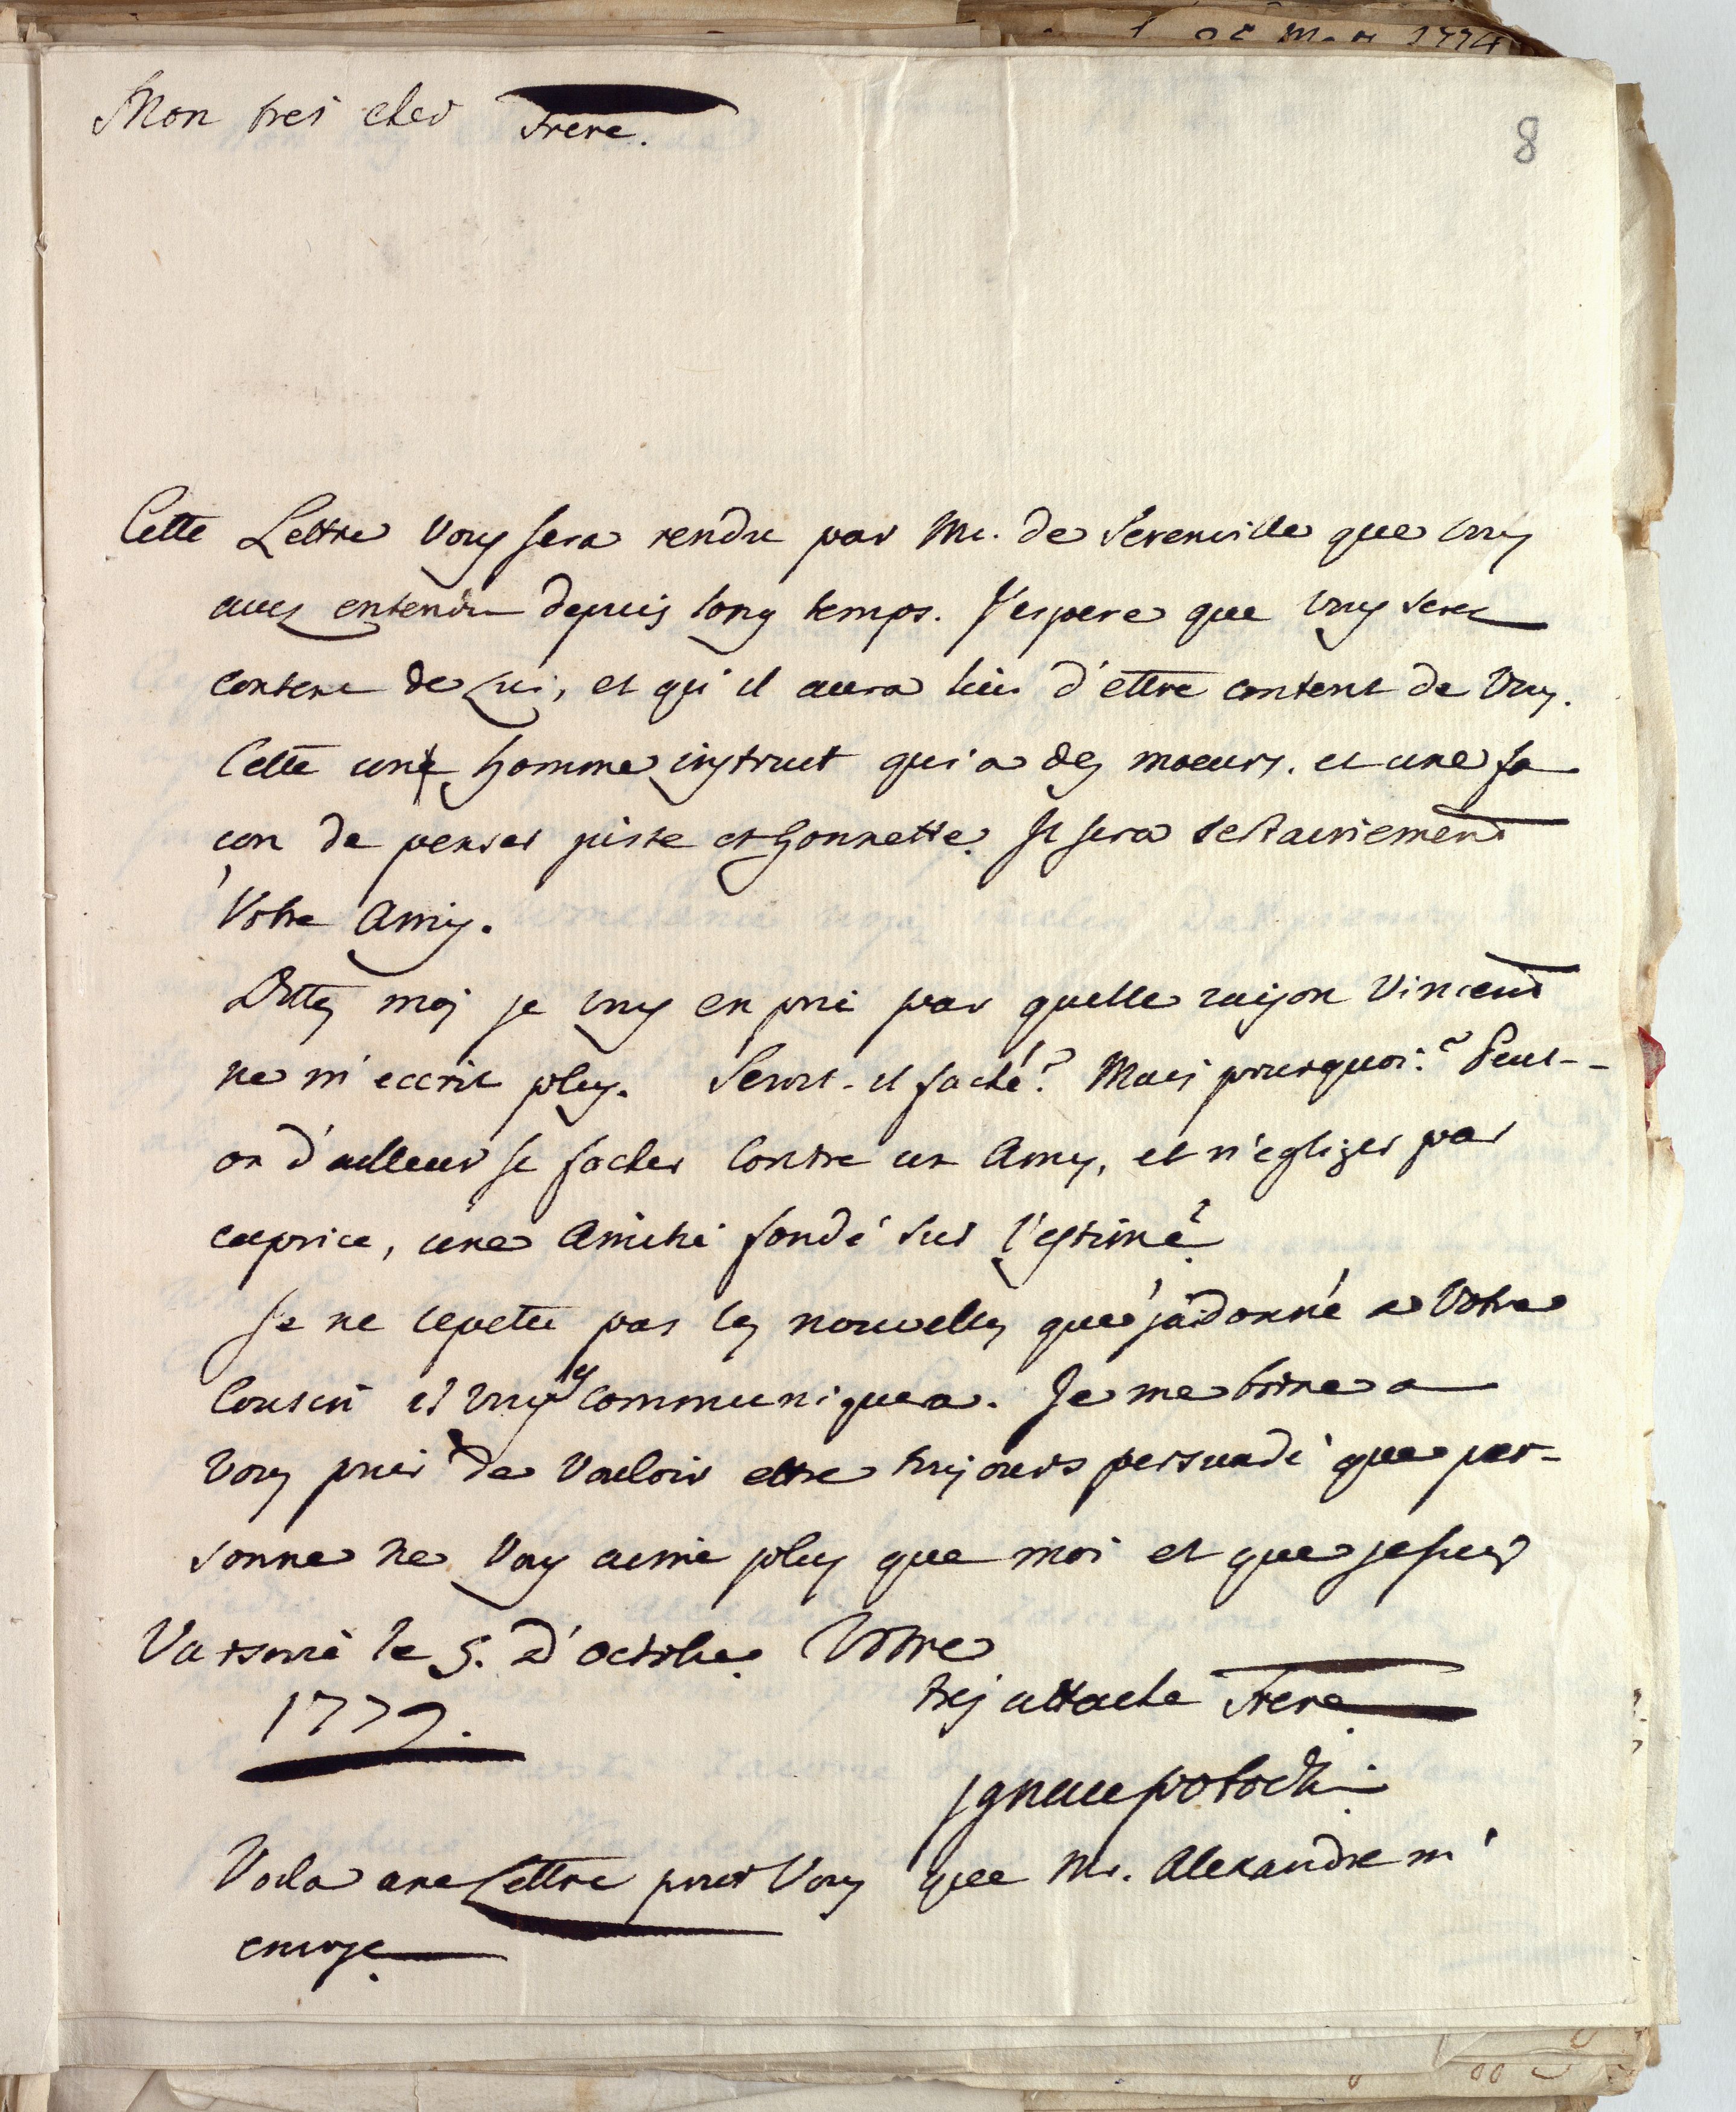 Mon tres cher Frere.
8
Cette Lettre vous sera rendu par Mr. de Serenville que vous
aves entendu depuis long temps. J'espere que vous seres
content de Lui, et qu'il aura lieu d'ettre content de vous.
Cette une homme instruit qui a des moeurs. et une fa
çon de penser juste et honnette. Il sera certainement
Votre Amy.
Dittes moi je vous en prie par quelle raison Vincent
ne m'eccrit plus. Seroit-il faché? Mais pourquoi? Peut-
on d'ailleur se facher Contre un Amy, et n'egliger par
caprice, une Amitié fondé sur l'estime?
Je ne repette pas les nouvelles que j'ai donné a Votre
Cousin il vous les communiquera. Je me borne a
vous prier de vouloir ettre toujours persuadé que per-
sonne ne vous aime plus que moi et que je suis
Varsovie le 5. d'octobre. Votre
1772.
tres attache Frere
Ignace potocki
Voila une Lettre pour Vous que Mr. Alexandre m'
envoye.